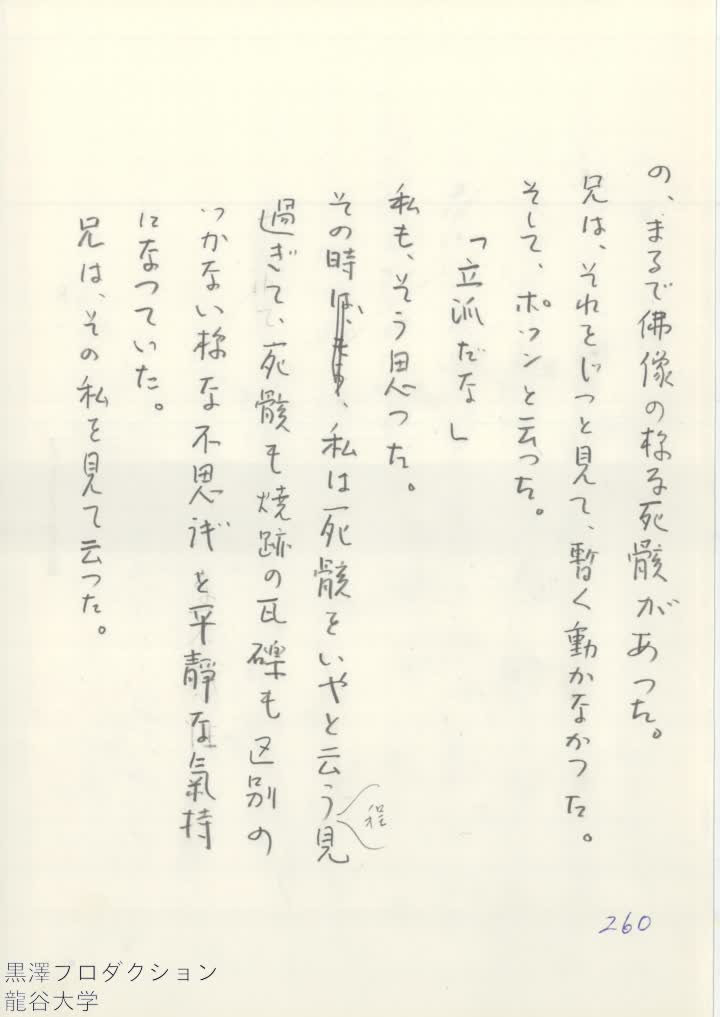 の、まるで佛像の様な死骸があつた。
兄は、それをじつと見て、暫く動かなかつた。
そして、ポツンと云つた。
「立派だな」
私も、そう思つた。
その時、私は死骸をいやと云う程見
過ぎて、死骸も焼跡の瓦礫も区別の
つかない様な不思議と平靜な氣持
になつていた。
兄は、その私を見て云つた。
260
黒澤プロダクション
龍谷大学